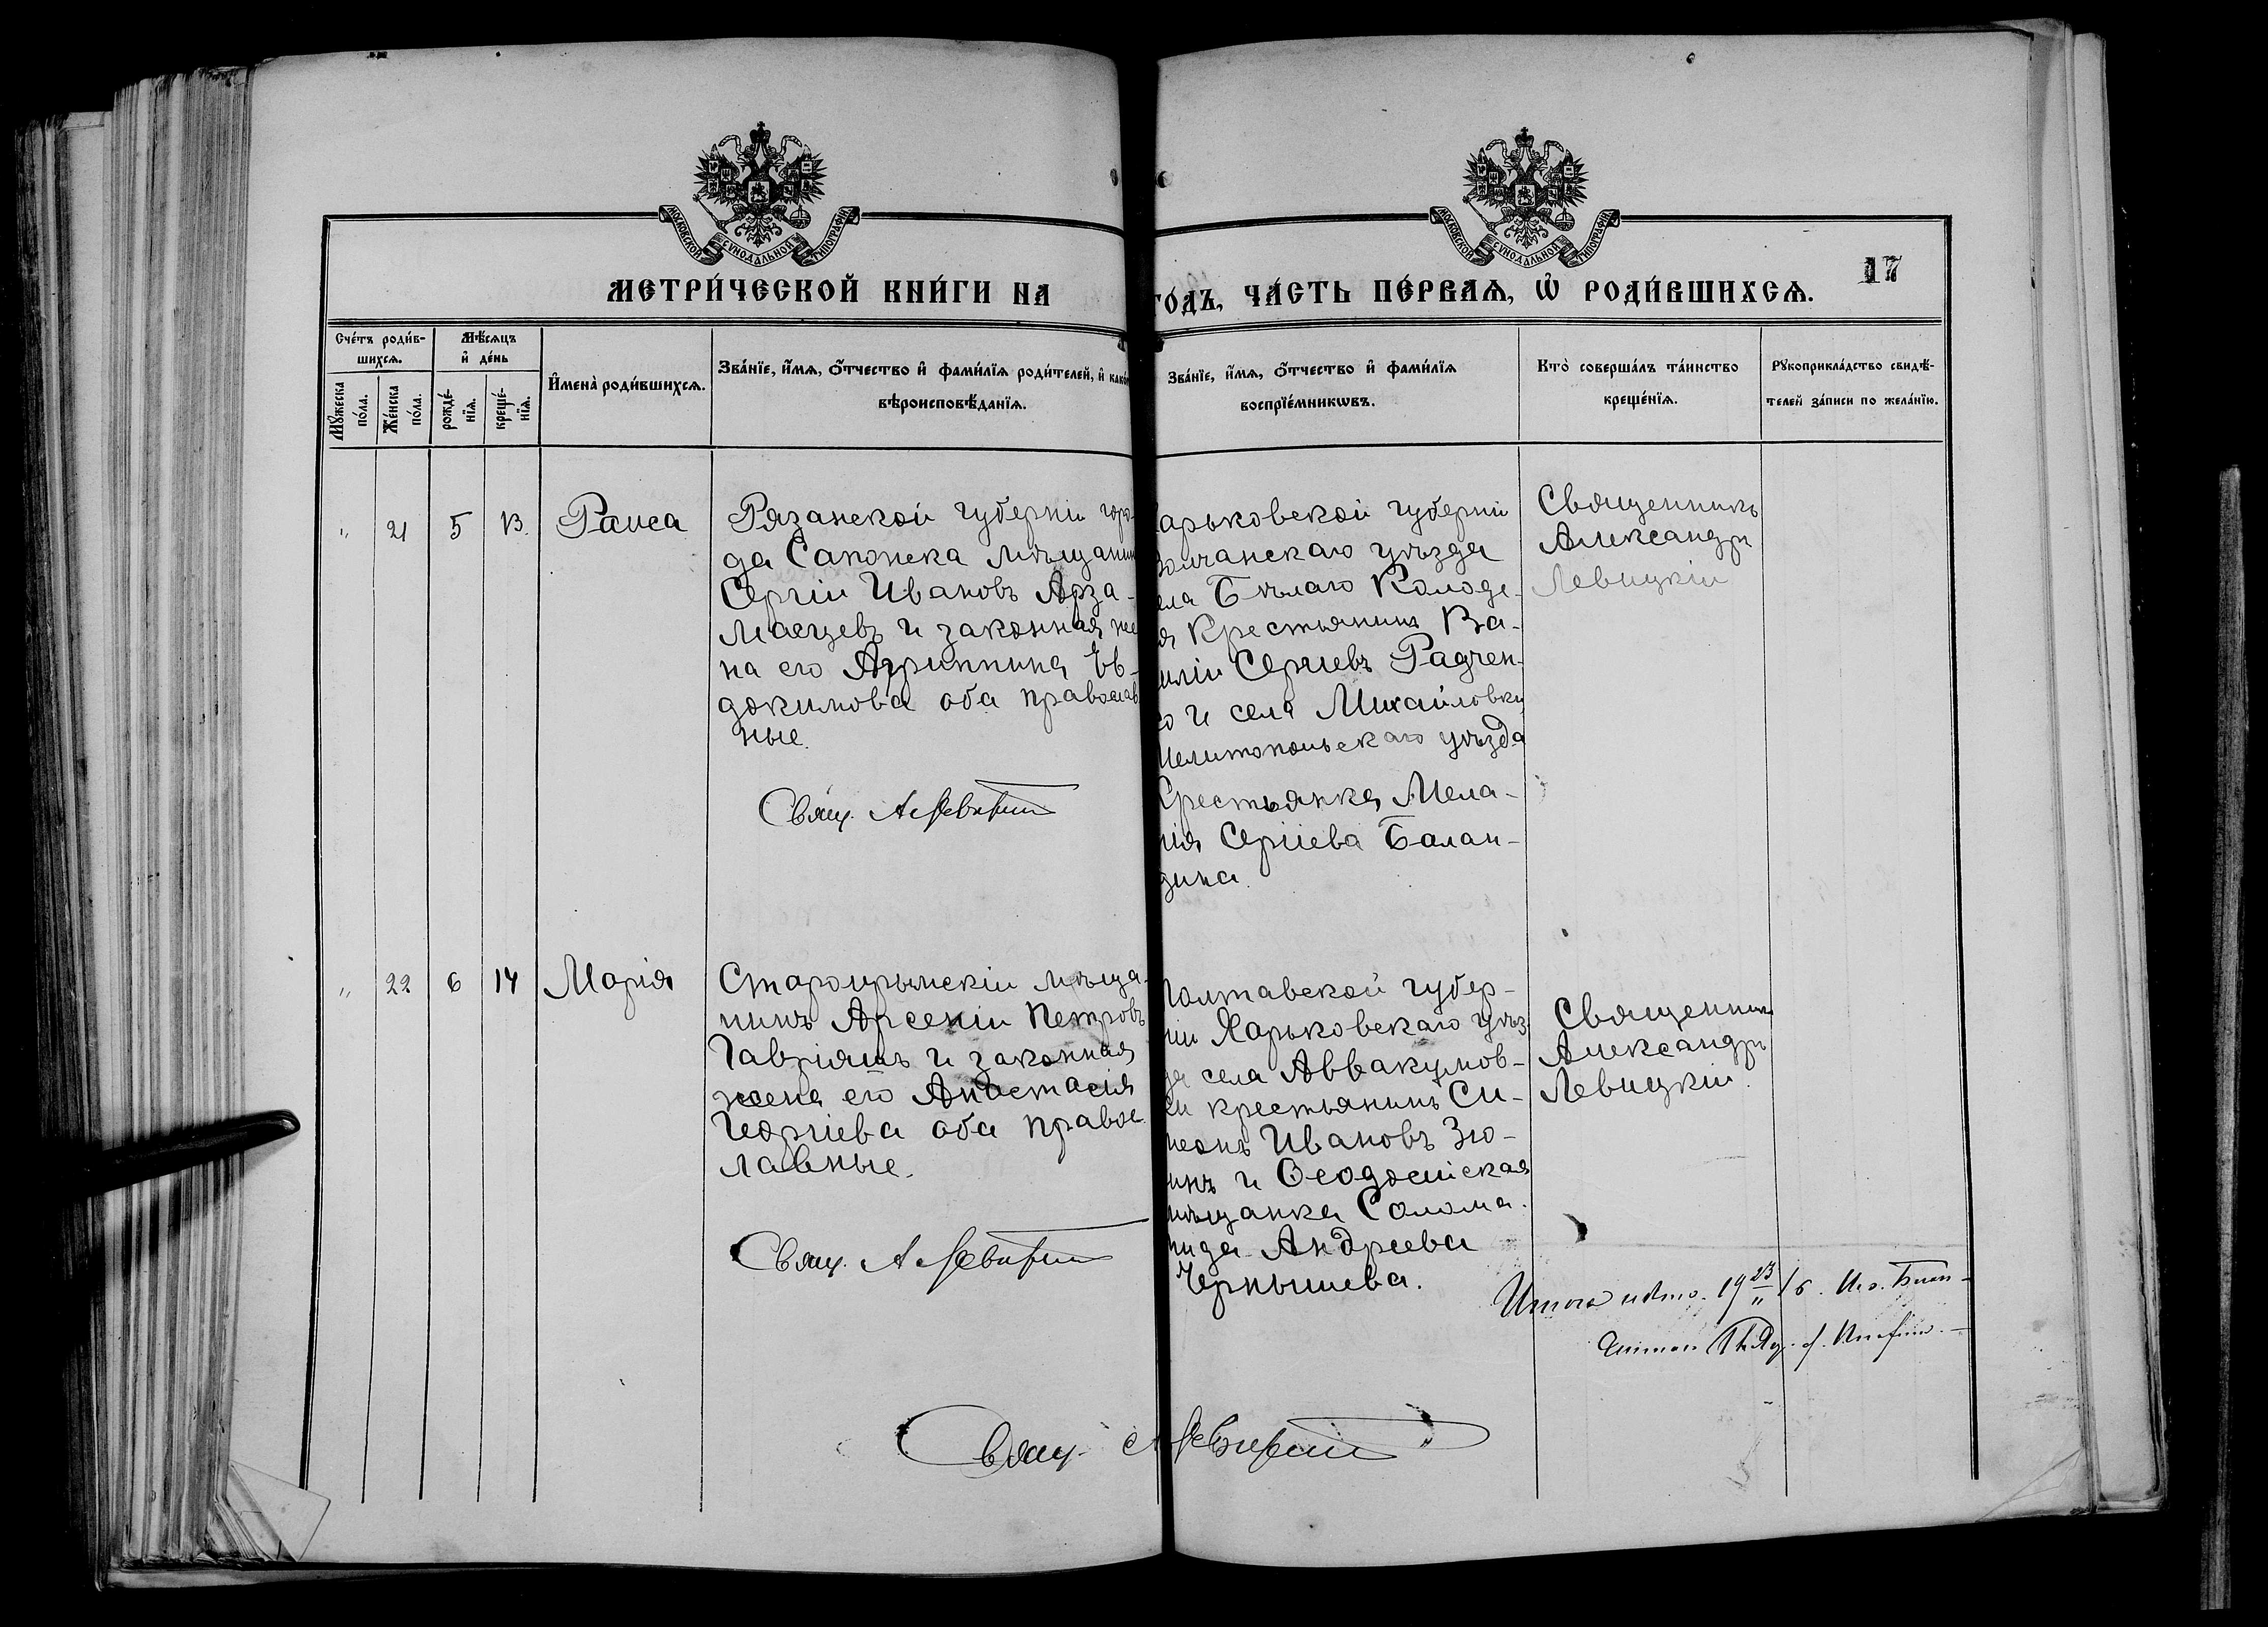 МОСКОВСКОЙ СѴНОДАЛЬНОЙ ТИПОГРАФІИ
МОСКОВСКОЙ СѴНОДАЛЬНОЙ ТИПОГРАФІИ
МЕТРИ́ЧЕСКОЙ КНИ́ГИ НА
ГО́ДЪ, ЧА́СТЬ ПЕ́РВАѦ, Ѡ҆ РОДИ́ВШИХСѦ.
17
Сче́тъ роди́в-
шихсѧ.
Мѣ́сѧцъ
и҆ де́нь
Мꙋ́жеска
по́ла.
Же́нска
по́ла.
рожде́-
нїѧ.
креще́-
нїѧ.
И҆мена̀ роди́вшихсѧ.
Зва́нїе, и҆́мѧ, ѻ҆́тчество и҆ фами́лїѧ роди́телей, и҆ како́
вѣроисповѣ́данїѧ.
Зва́нїе, и҆́мѧ, ѻ҆́тчество и҆ фами́лїѧ
воспрїе́мникѡвъ.
Кто̀ соверша́лъ та́инство
креще́нїѧ.
Рꙋкоприкла́дство свидѣ́-
телей за́писи по жела́нїю.
" 21 5 13. Раиса
Рязанской губерніи горо-
да Сапожка мѣщанин
Сергій Ивановъ Арза-
масцевъ и законная же
на его Агриппина Ев-
докимова оба православ
ные.
Свящ. А Левицкій
арьковской губерніи
волчанскаго уѣзда
ела Бѣлаго Колоде-
я крестьянинъ Ва-
илій Сергіевъ Радчен-
о и села Михайловки
Мелитопольскаго уѣзда
крестьянка Мела-
нія Сергіева Балан-
дина.
Священникъ
Александръ
Левицкій
" 22 6 14 Марія
Старокрымскій мѣща-
нинъ Арсеній Петровъ
Гавріяшъ и законная
жена его Анастасія
Георгіева оба правос
лавные.
Свящ. А Левицкій
Полтавской губер-
ніи Харьковскаго уѣз
да села Аввакумов-
ки крестьянинъ Си-
меонъ Ивановъ Зю-
инъ и Ѳеодосійская
мѣщанка Солома-
нида Андреева
Чернышева.
Священникъ
Александръ
Левицкій.
19 23
Свящ. А Левицкій